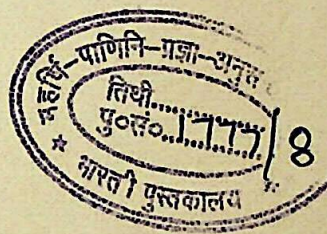 महर्षि-पाणिनि-प्रज्ञा-अनुसं
तिथी..............
पु०सं०..1777/8
★ भारती पुस्तकालय